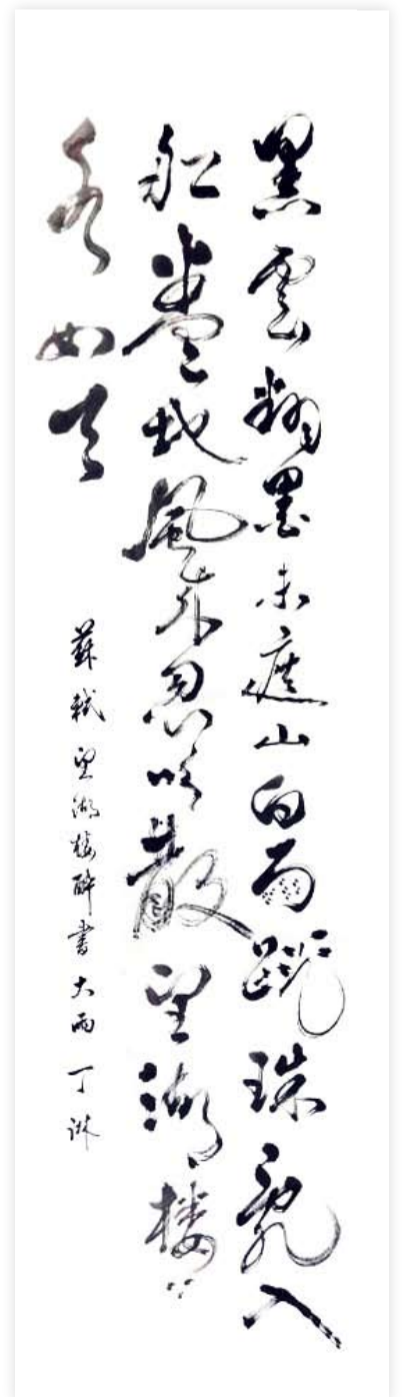 黑雲翻墨未遮山白雨跳珠亂入
船卷地風來忽吹散望湖楼下
水如天
蘇軾望湖楼醉書 大雨 丁